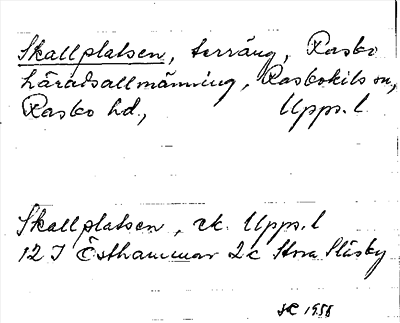 Skallplatsen, terräng, Rasbo
häradsallmänning, Rasbokils sn,
Rasbo hd, Upps. l.
Skallplatsen, ek. Upps. l
12 I Östhammar 2c Stora Släsby
1958